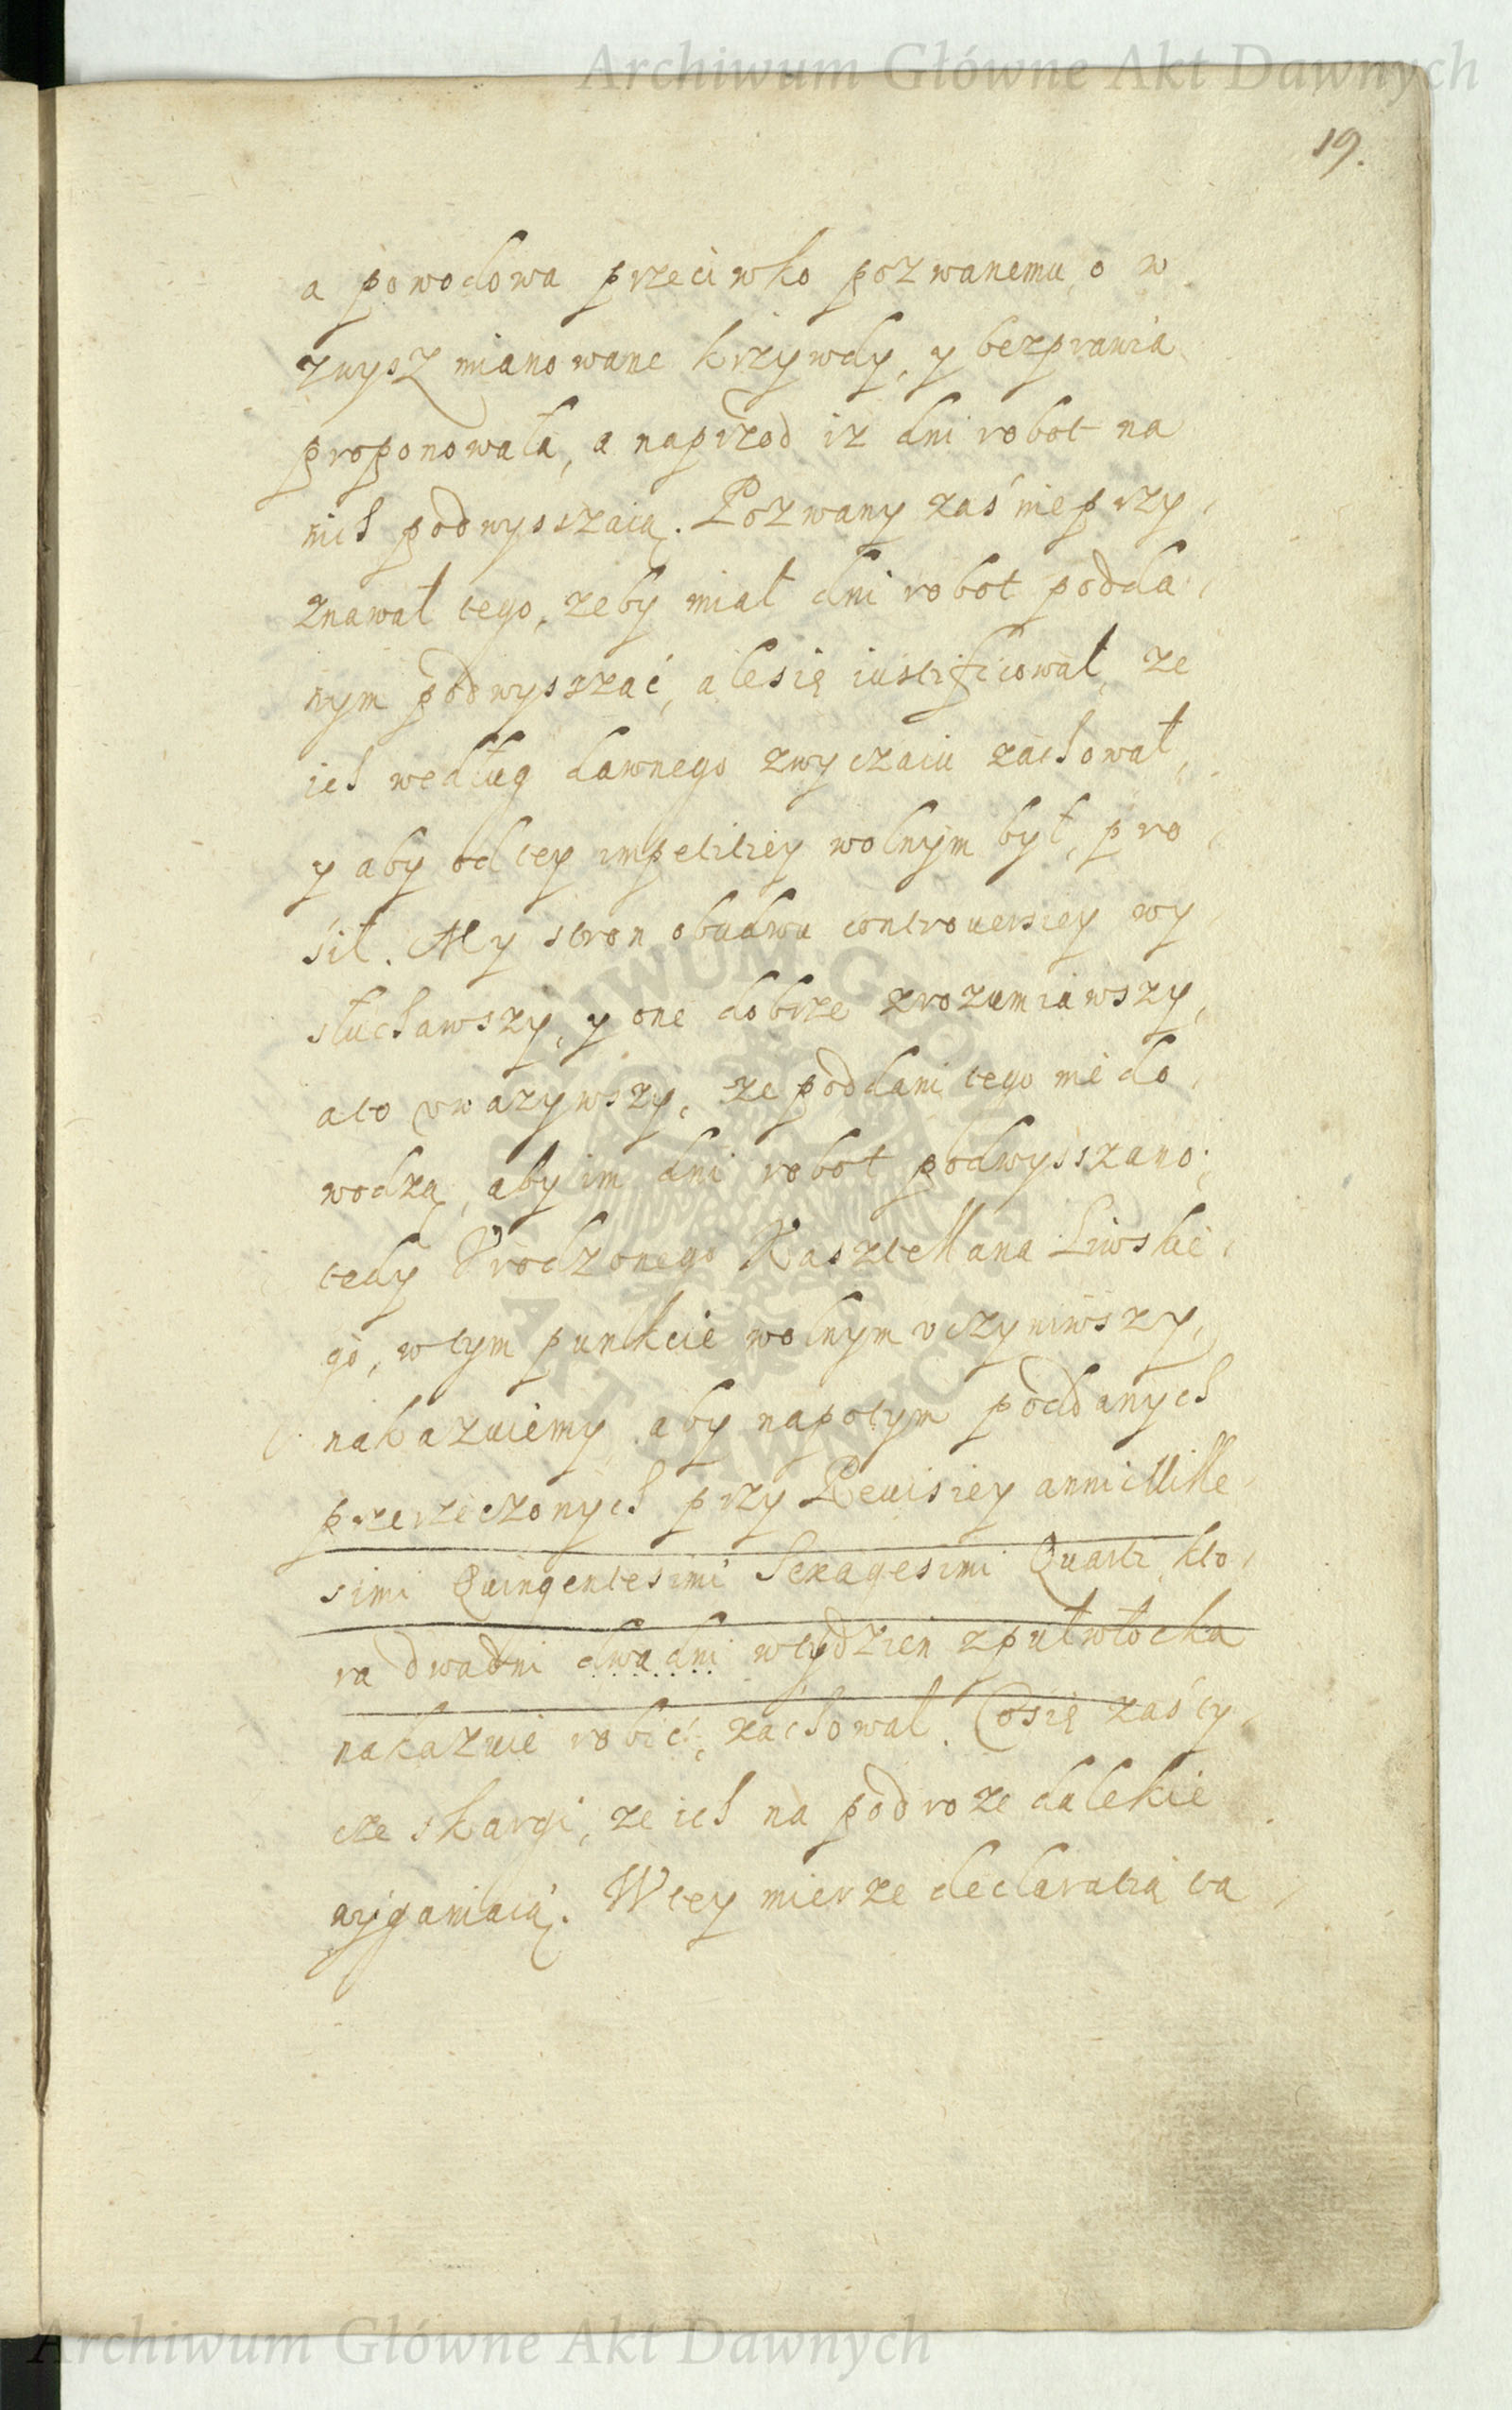 Archiwum Główne Akt Dawnych
19.
a powodowa przeciwko pozwanemu o w
zwysz mianowane krzywdy, y bezprawia
proponowała, a naprzod iz dni robot na
nich podwysszaią. Pozwany zaś nie przy
znawał tego, zeby miał dni robot podda
nym podwysszać, alesię iustificował, ze
ich według dawnego zwyczaiu zachował,
y aby od tey impetitiey wolnym był, pro
śił. My stron obudwu controuersiey wy
słuchawszy, y one dobrze zrozumiawszy,
ato vwazywszy, ze poddani tego nie do
wodzą, aby im dni robot podwysszano;
tedy Vrodzonego Kasztellana Liwskie
go, wtym punkcie wolnym vczyniwszy,
nakazuiemy, aby napotym poddanych
przerzeczonych przy Reuisiey anni Mille
simi Quingentesimi Sexagesimi Quarti, kto
ra dwadni dwa dni wtydzien zpułwłocka
nakazuie robić, zachował. Cosię zaś ty
cze skargi, ze ich na podroze dalekie
wyganiaią. Wtey mierze declaratia ta
ARCHIWUM GŁÓWNE AKT DAWNYCH
Archiwum Główne Akt Dawnych